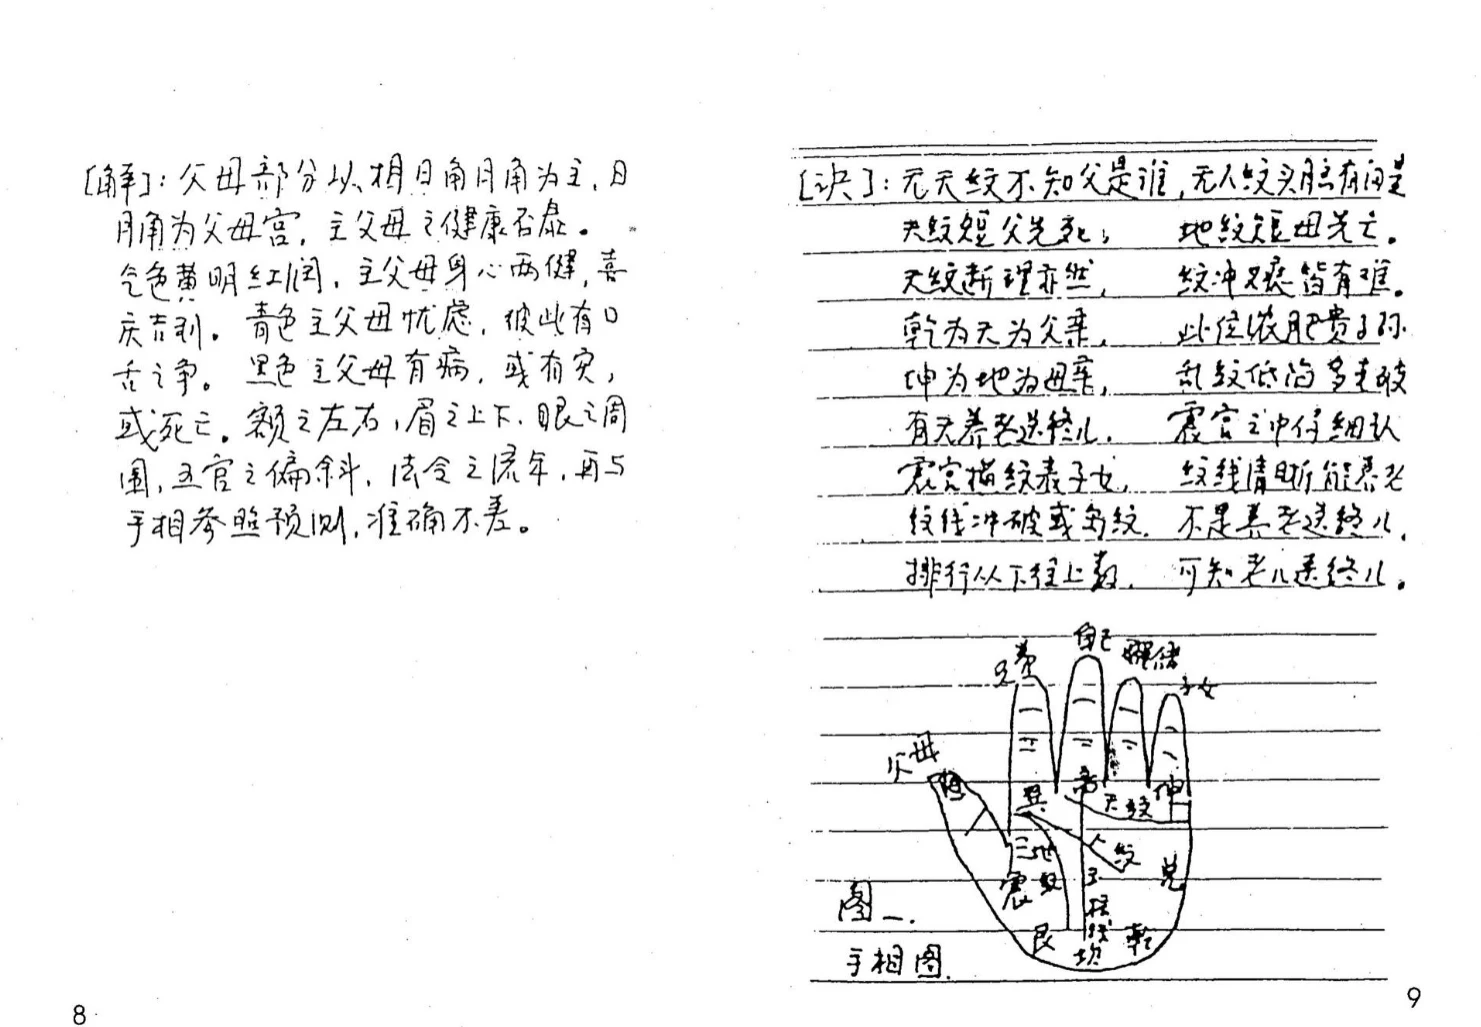 [解]：父母部分以相日角月角为主，日
月角为父母宫，主父母之健康否泰。
气色黄明红润，主父母身心两健，喜
庆吉利。青色主父母忧虑，彼此有口
舌之争。黑色主父母有病，或有灾，
或死亡。额之左右，眉之上下，眼之周
围，五官之偏斜，法令之流年，再与
手相参照预测，准确不差。
8
[诀]：无天纹不知父是谁，无人纹头脑有问是
天纹短父先死； 地纹短母先亡。
天纹断理亦然， 纹冲又痕皆有难。
乾为天为父亲， 此位浓肥贵子孙
坤为地为母亲， 乱纹低陷多走破
有无养老送终儿， 震宫之中仔细认
震宫横纹表子女， 纹线清晰能养老
纹线冲破或岛纹， 不是养老送终儿，
排行从下往上数， 可知老儿送终儿。
自己
兄弟
子女
父母
巽
天纹
坤
三地
人
纹
纹
震
主
兑
图一.
艮
坎
乾
手相图
9